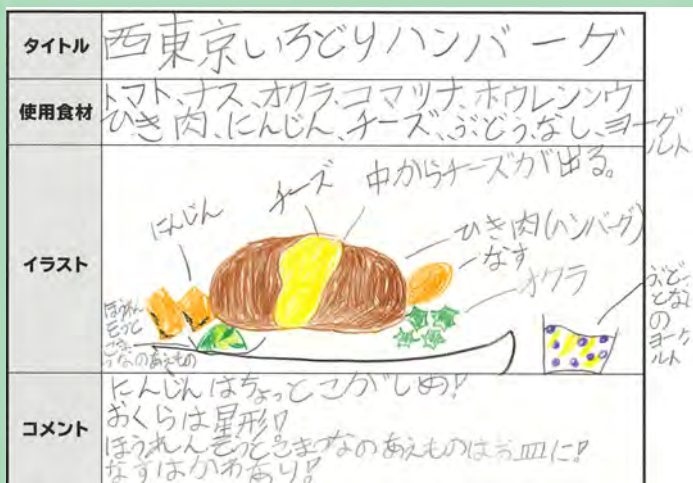 タイトル
西東京いろどりハンバーグ
使用食材
トマト、ナス、オクラ、コマツナ、ホウレンソウ
ひき肉、にんじん、チーズ、ぶどう、なし、ヨーグルト
イラスト
にんじん
チーズ
中からチーズが出る。
ひき肉(ハンバーグ)
なす
オクラ
ほうれん
そうと
こま
つなのあえもの
ぶどう
となし
の
ヨーグ
ルト
コメント
にんじんはちょっとこがしめ!
おくらは星形!
ほうれんそうとこまつなのあえものはお皿に!
なすはかわあり!